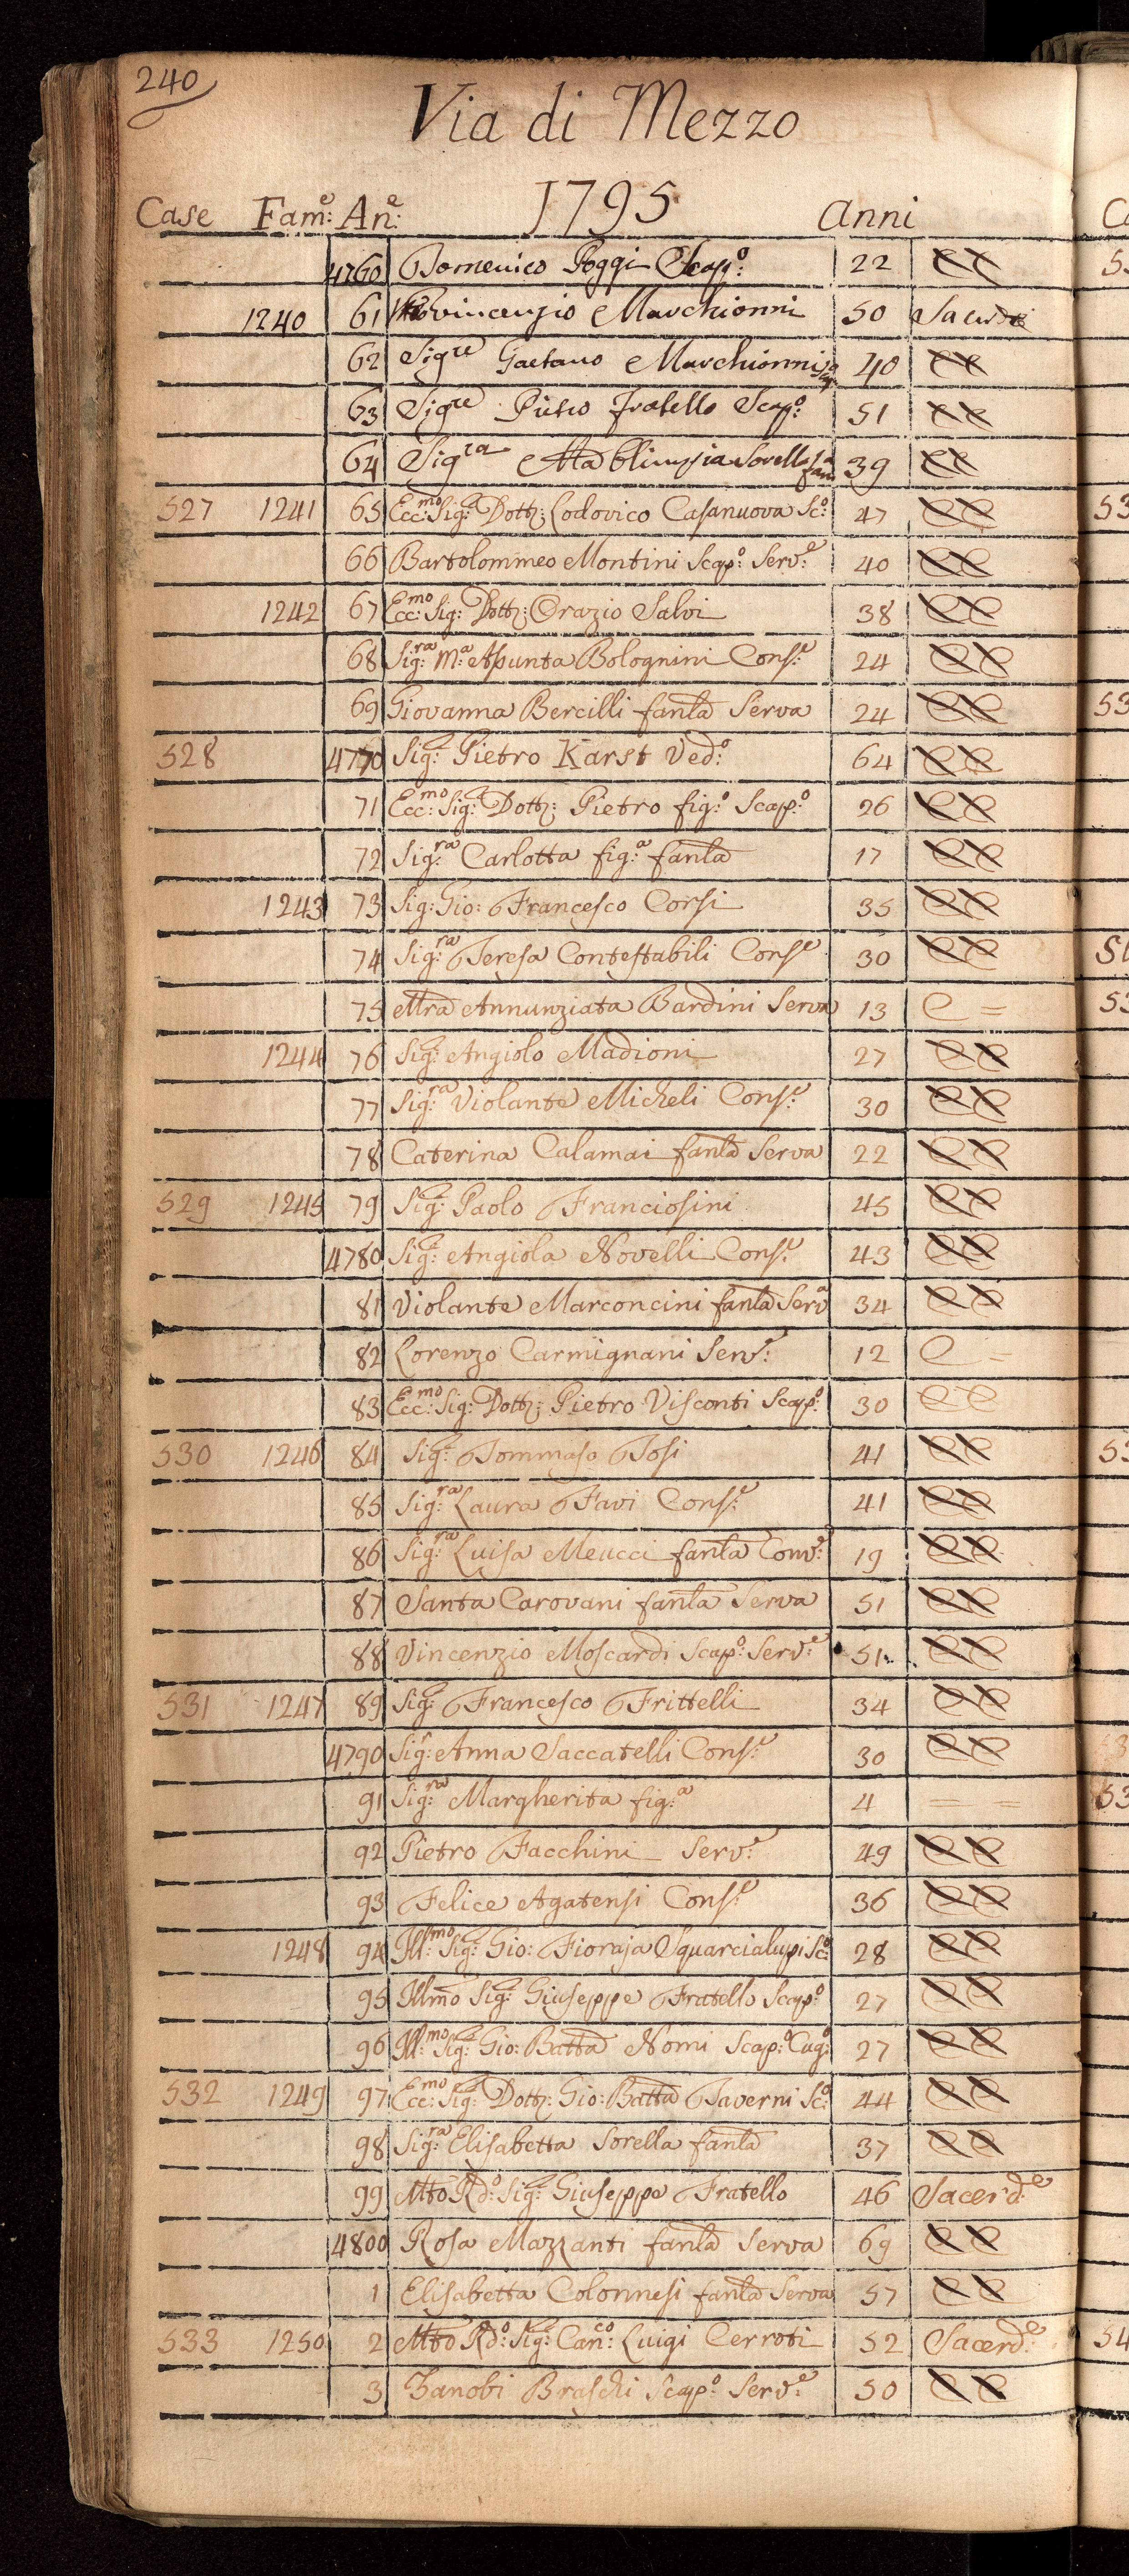 240
Via di Mezzo
1795
Case Fam:e An:e Anni
4760 Domenico Poggi Scap:o 22 CC
1240 61 Vincenzio Marchionni 50 Sacerd
62 Sigre Gaetano Marchionni 40 CC
63 Sigre Pietro fratello Scap:o 51 CC
64 Sigra Ma Olimpia Sorella 39 CC
527 1241 65 Ecc:mo Sig:r Dott: Lodovico Casanuova Sc:o 47 CC
66 Bartolommeo Montini Scap:o Serv:e 40 CC
1242 67 Ecc:mo Sig: Dott: Orazio Salvi 38 CC
68 Sig:ra M:a Asunta Bolognini Cons:e 24 CC
69 Giovanna Bercilli fanla Serva 24 CC
528 4770 Sig:r Pietro Karst Ved:o 64 CC
71 Ecc:mo Sig:r Dott: Pietro fig:o Scap:o 26 CC
72 Sig:ra Carlotta fig:a fanla 17 CC
1243 73 Sig: Gio: Francesco Corsi 35 CC
74 Sig:ra Teresa Contestabili Conse 30 CC
75 Mra Annunziata Bardini Serva 13 C =
1244 76 Sig:r Angiolo Madioni 27 CC
77 Sig:ra Violante Micheli Cons:e 30 CC
78 Caterina Calamai fanla Serva 22 CC
529 1245 79 Sig:r Paolo Franciosini 45 CC
4780 Sig:a Angiola Novelli Cons:e 43 CC
81 Violante Marconcini fanla Serva 34 CC
82 Lorenzo Carmignani Serv:e 12 C =
83 Ecc:mo Sig: Dott: Pietro Visconti Scap:o 30 CC
530 1246 84 Sig:r Tommaso Tosi 41 CC
85 Sig:ra Laura Favi Cons:e 41 CC
86 Sig:ra Luisa Meucci fanla Conv:e 19 CC
87 Santa Carovani fanla Serva 51 CC
88 Vincenzio Moscardi Scap:o Serv:e 51 CC
531 1247 89 Sig:r Francesco Frittelli 34 CC
4790 Sig:a Anna Saccatelli Cons:e 30 CC
91 Sig:ra Margherita fig:a 4 = =
92 Pietro Facchini Serv:e 49 CC
93 Felice Agatensi Cons:e 36 CC
1248 94 Ill:mo Sig:r Gio: Fioraja Squarcialupi Sc:o 28 CC
95 Illmo Sig:r Giuseppe Fratello Scap:o 27 CC
96 Ill:mo Sig:r Gio: Batta Nomi Scap:o Cug:o 27 CC
532 1249 97 Ecc:mo Sig:r Dott: Gio: Batta Taverni Sc:o 44 CC
98 Sig:ra Elisabetta Sorella fanla 37 CC
99 Mto Rd:o Sig:r Giuseppe Fratello 46 Sacerd:e
4800 Rosa Mazzanti fanla Serva 69 CC
1 Elisabetta Colonnesi fanla Serva 57 CC
533 1250 2 Mto Rd:o Sig:r Can:co Luigi Cerroti 52 Sacerd:e
3 Zanobi Braschi Scap:o Serv:e 50 CC